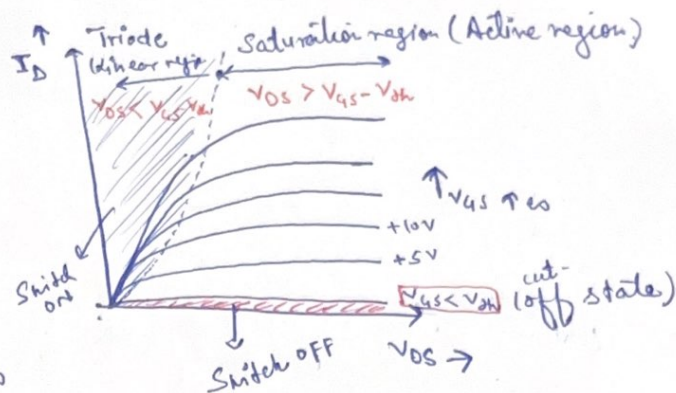 ↑
I_D
Triode
Linear regio
Saturation region (Active region)
V_DS < V_GS - V_th
V_DS > V_GS - V_th
↑ V_GS ↑ es
+10V
+5V
Switch
on
V_GS < V_th
(cut-
off state)
Switch OFF
V_DS →